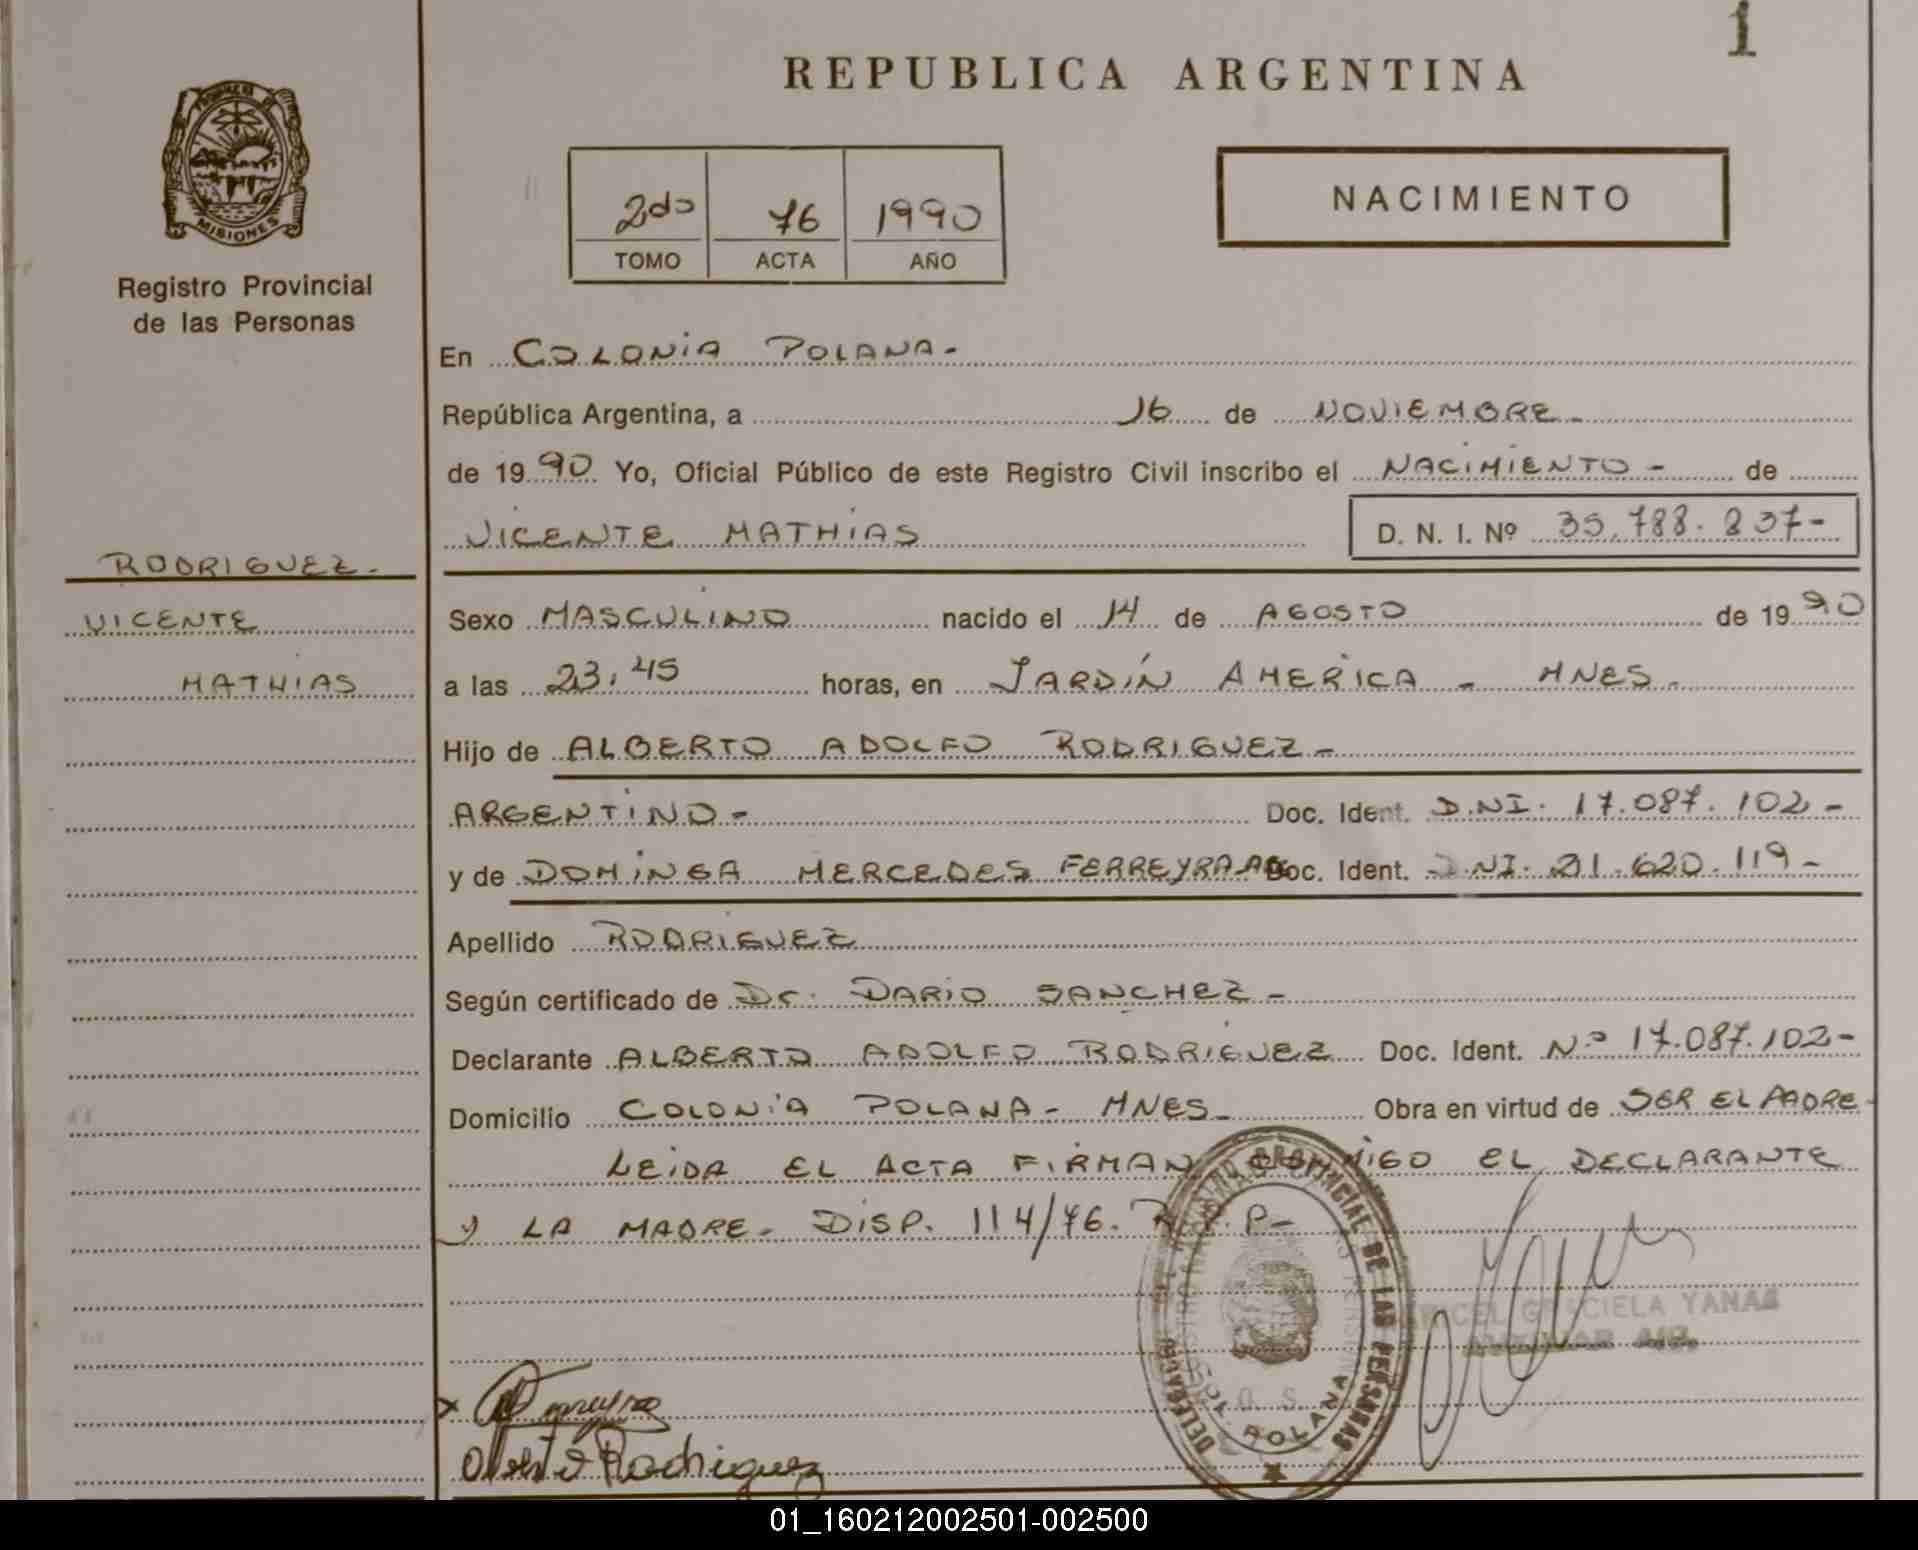 1
REPUBLICA ARGENTINA
PROVINCIA DE
MISIONES
Registro Provincial
de las Personas
2do 76 1990
TOMO ACTA AÑO
NACIMIENTO
En COLONIA POLANA-
República Argentina, a 16 de NOVIEMBRE-
de 1990 Yo, Oficial Público de este Registro Civil inscribo el NACIMIENTO- de
VICENTE MATHIAS D. N. I. Nº 35.788.237-
RODRIGUEZ-
VICENTE
MATHIAS
Sexo MASCULINO nacido el 14 de AGOSTO de 1990
a las 23,45 horas, en JARDÍN AMERICA - MNES-
Hijo de ALBERTO ADOLFO RODRIGUEZ-
ARGENTINO- Doc. Ident. D.NI. 17.087.102-
y de DOMINGA MERCEDES FERREYRA Doc. Ident. D.NI. 21.620.119-
Apellido RODRIGUEZ
Según certificado de Dr. DARIO SANCHEZ-
Declarante ALBERTO ADOLFO RODRIGUEZ Doc. Ident. Nº 17.087.102-
Domicilio COLONIA POLANA- MNES- Obra en virtud de SER EL PADRE-
LEIDA EL ACTA FIRMAN CONMIGO EL DECLARANTE
Y LA MADRE- DISP. 114/76. R.P.P-
REGISTRO PROVINCIAL DE LAS PERSONAS
DELEGACION
COL. POLANA
GRACIELA YANAS
AUXILIAR
Rodriguez
01_160212002501-002500